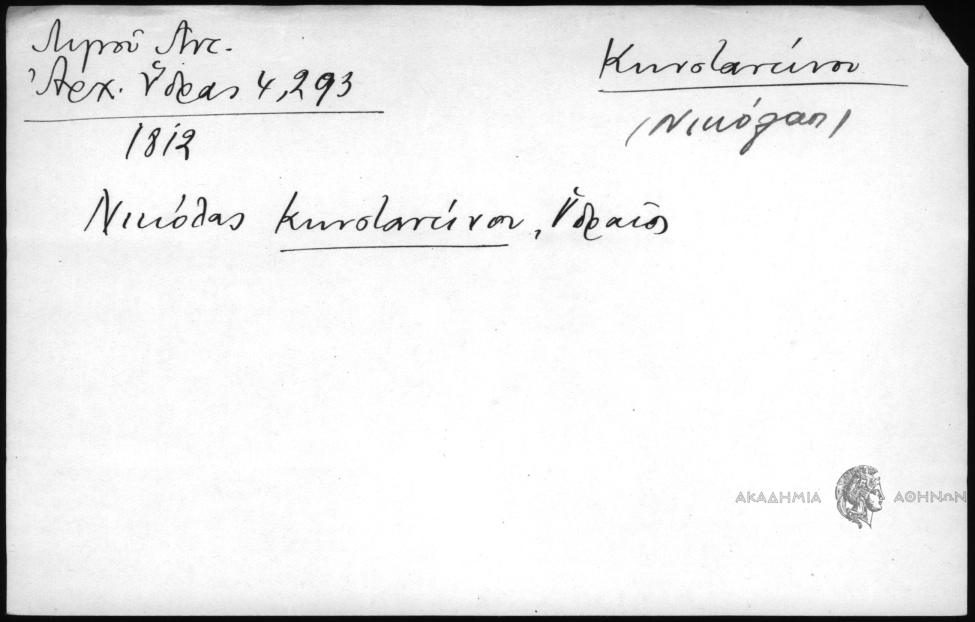 Λιγνοῦ Ἀντ.
Ἀρχ. Ὕδρας 4,293
1812
Κωνσταντίνου
(Νικόλας)
Νικόλας Κωνσταντίνου, Ὑδραῖος
ΑΚΑΔΗΜΙΑ ΑΘΗΝΩΝ